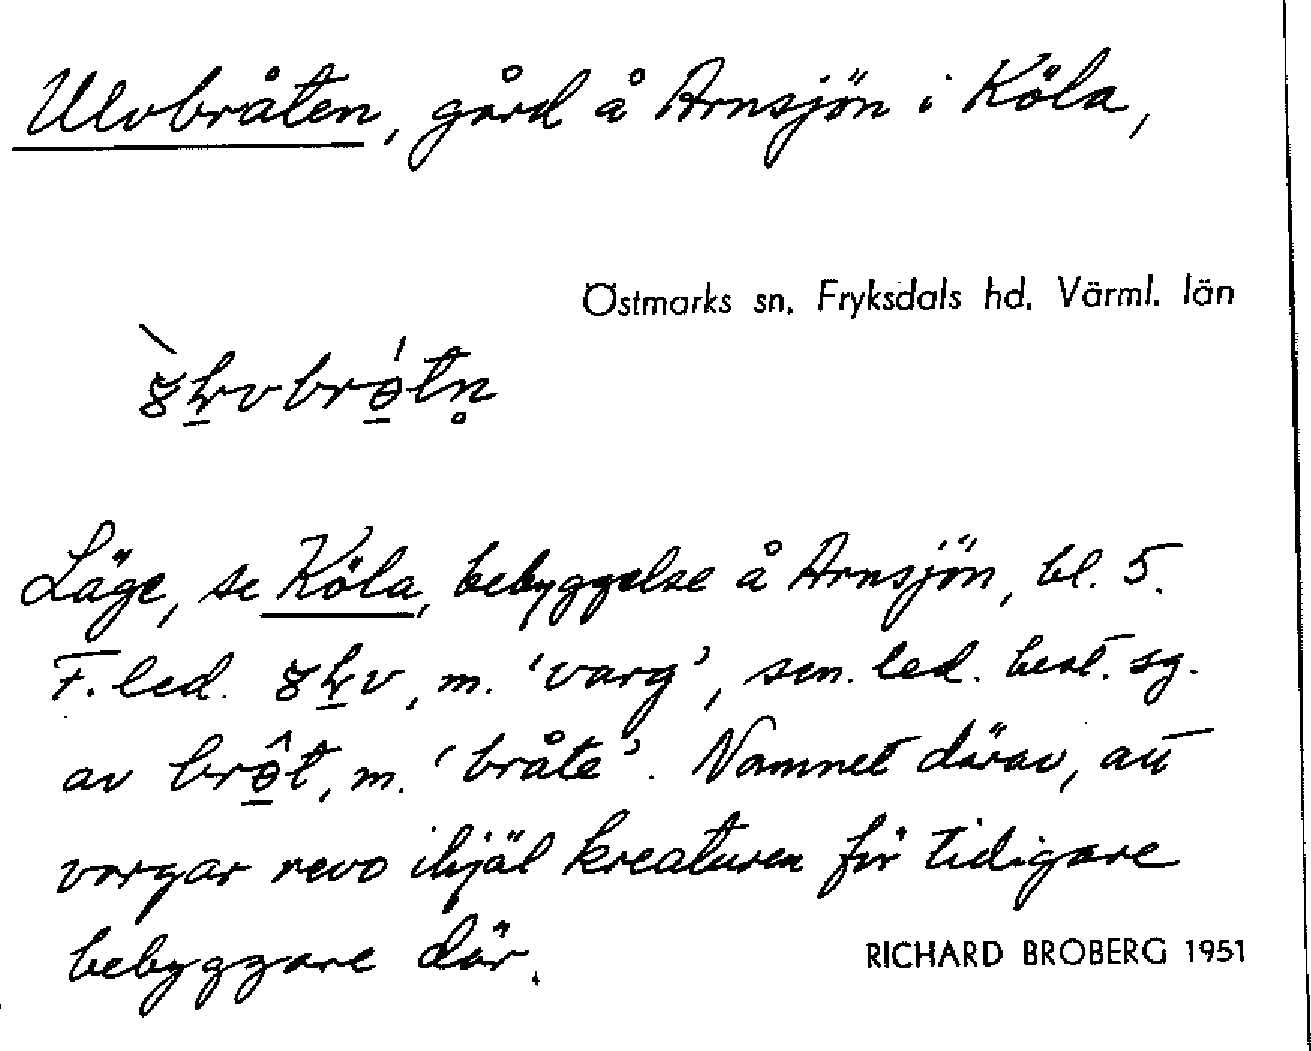 Ulvbråten, gård å Arnsjön i Köla,
Östmarks sn, Fryksdals hd, Värml. län
Läge, se Köla, bebyggelse å Arnsjön, bl. 5.
F. led. , m. 'varg', sen. led. best. sg.
av brô̲t, m. 'bråte'. Namnet därav, att
vargar revo ihjäl kreaturen för tidigare
bebyggare där.
RICHARD BROBERG 1951